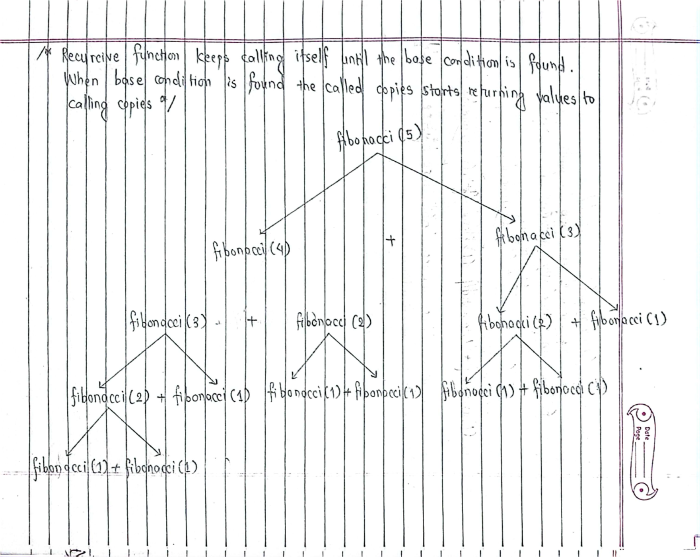 /* Recurcive function keeps calling itself until the base condition is found.
When base condition is found the called copies starts returning values to
calling copies */
fibonacci (5)
fibonacci (4) + fibonacci (3)
fibonacci (3) + fibonacci (2) fibonacci (2) + fibonacci (1)
fibonacci (2) + fibonacci (1) fibonacci (1) + fibonacci (1) fibonacci (1) + fibonacci (1)
fibonacci (1) + fibonacci (1)
Date
Page